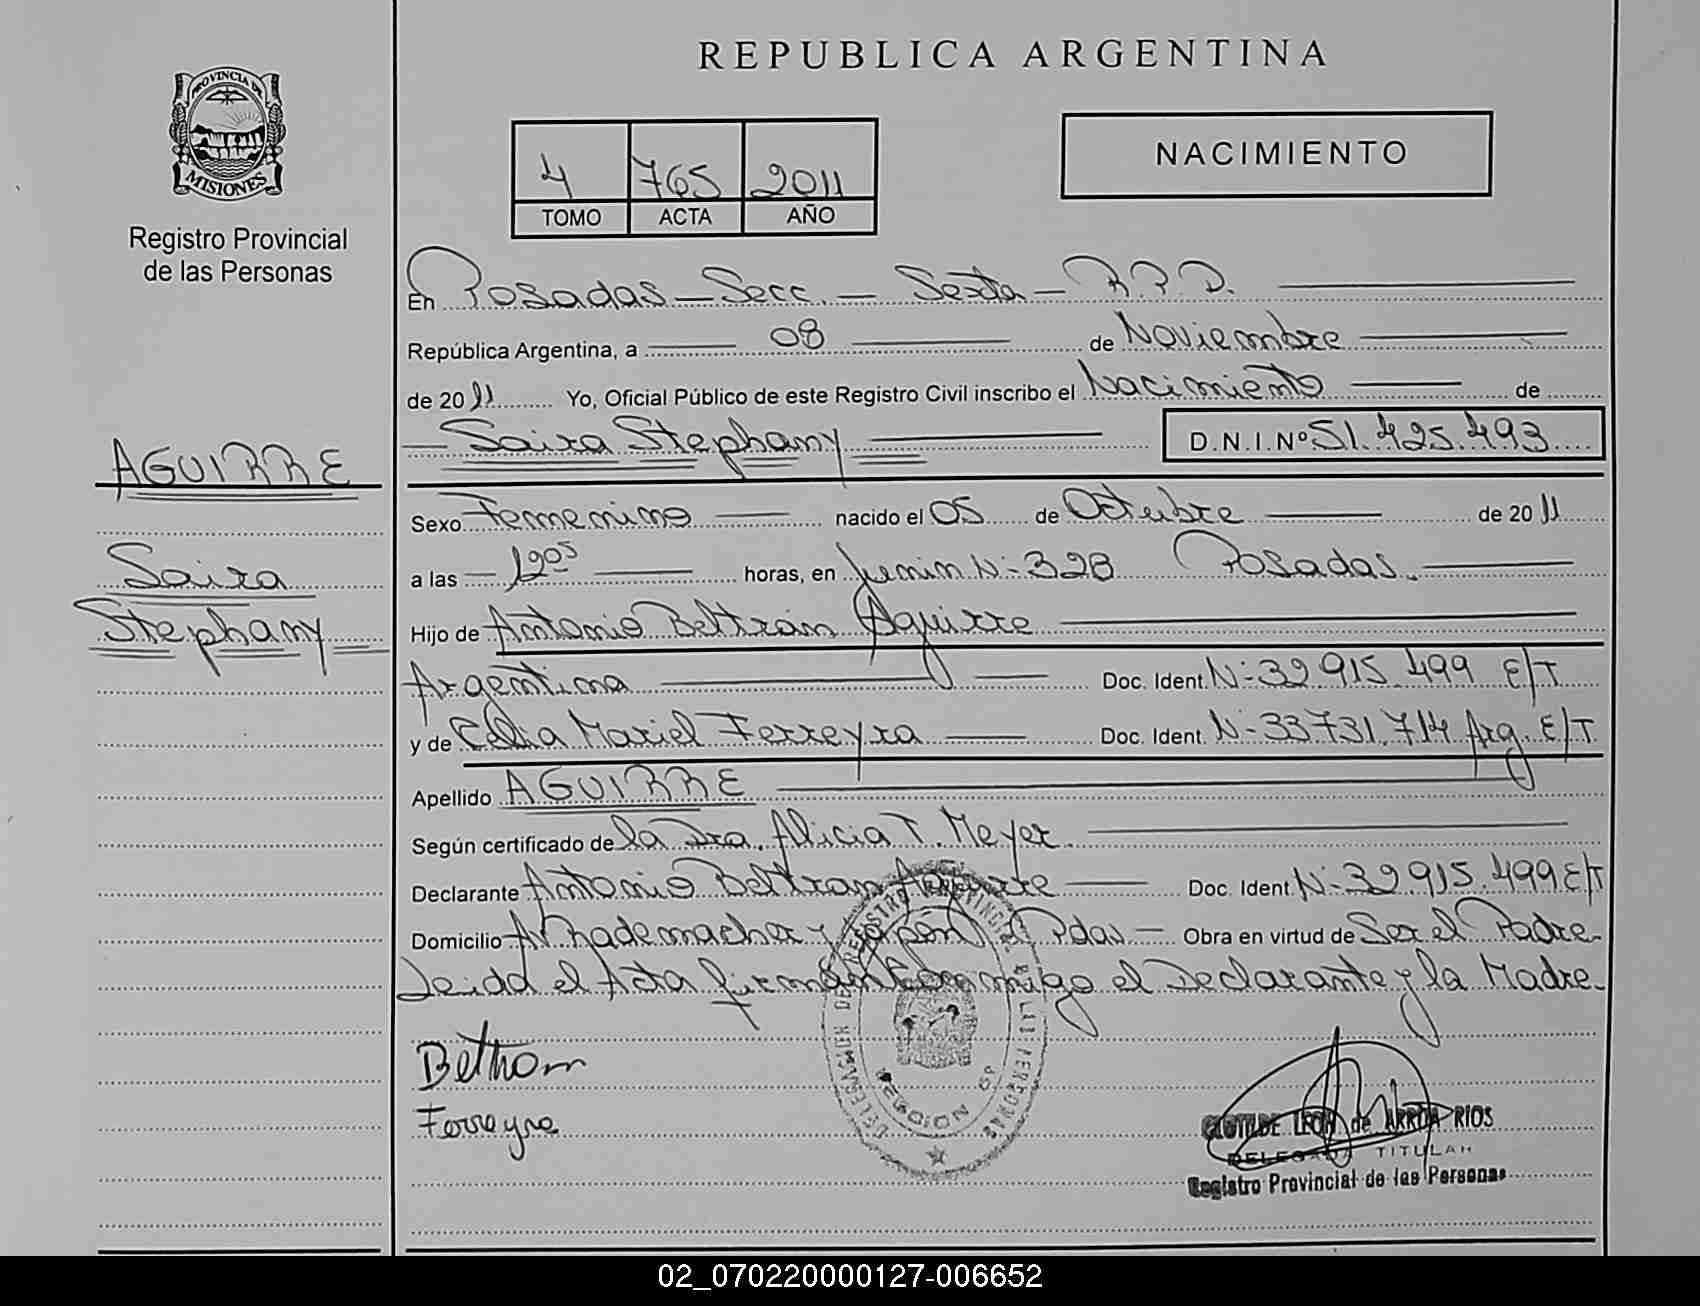 REPUBLICA ARGENTINA
PROVINCIA DE
MISIONES
Registro Provincial
de las Personas
4 765 2011
TOMO ACTA AÑO
NACIMIENTO
En Posadas - Secc. - Sexta - R.P.D.
República Argentina, a 08 de Noviembre
de 2011 Yo, Oficial Público de este Registro Civil inscribo el Nacimiento de
Saira Stephany D.N.I.Nº 51.425.493
AGUIRRE
Saira
Stephany
Sexo Femenino nacido el 05 de Octubre de 2011
a las 12:05 horas, en Junin N-328 Posadas.
Hijo de Antonio Beltran Aguirre
Argentina Doc. Ident. N-32.915.499 E/T
y de Celia Mariel Ferreyra Doc. Ident. N-33.731.714 Arg. E/T
Apellido AGUIRRE
Según certificado de la Dra. Alicia T. Meyer
Declarante Antonio Beltran Aguirre Doc. Ident. N-32.915.499 E/T
Domicilio Av. Rademacher y Pdas - Obra en virtud de Ser el Padre
Leida el Acta firman conmigo el Declarante y la Madre
Beltran
Ferreyra
DELEGACION DEL REGISTRO PROVINCIAL DE LAS PERSONAS
CLOTILDE LEON de ARRUA RIOS
DELEGADA TITULAR
Registro Provincial de las Personas
02_070220000127-006652